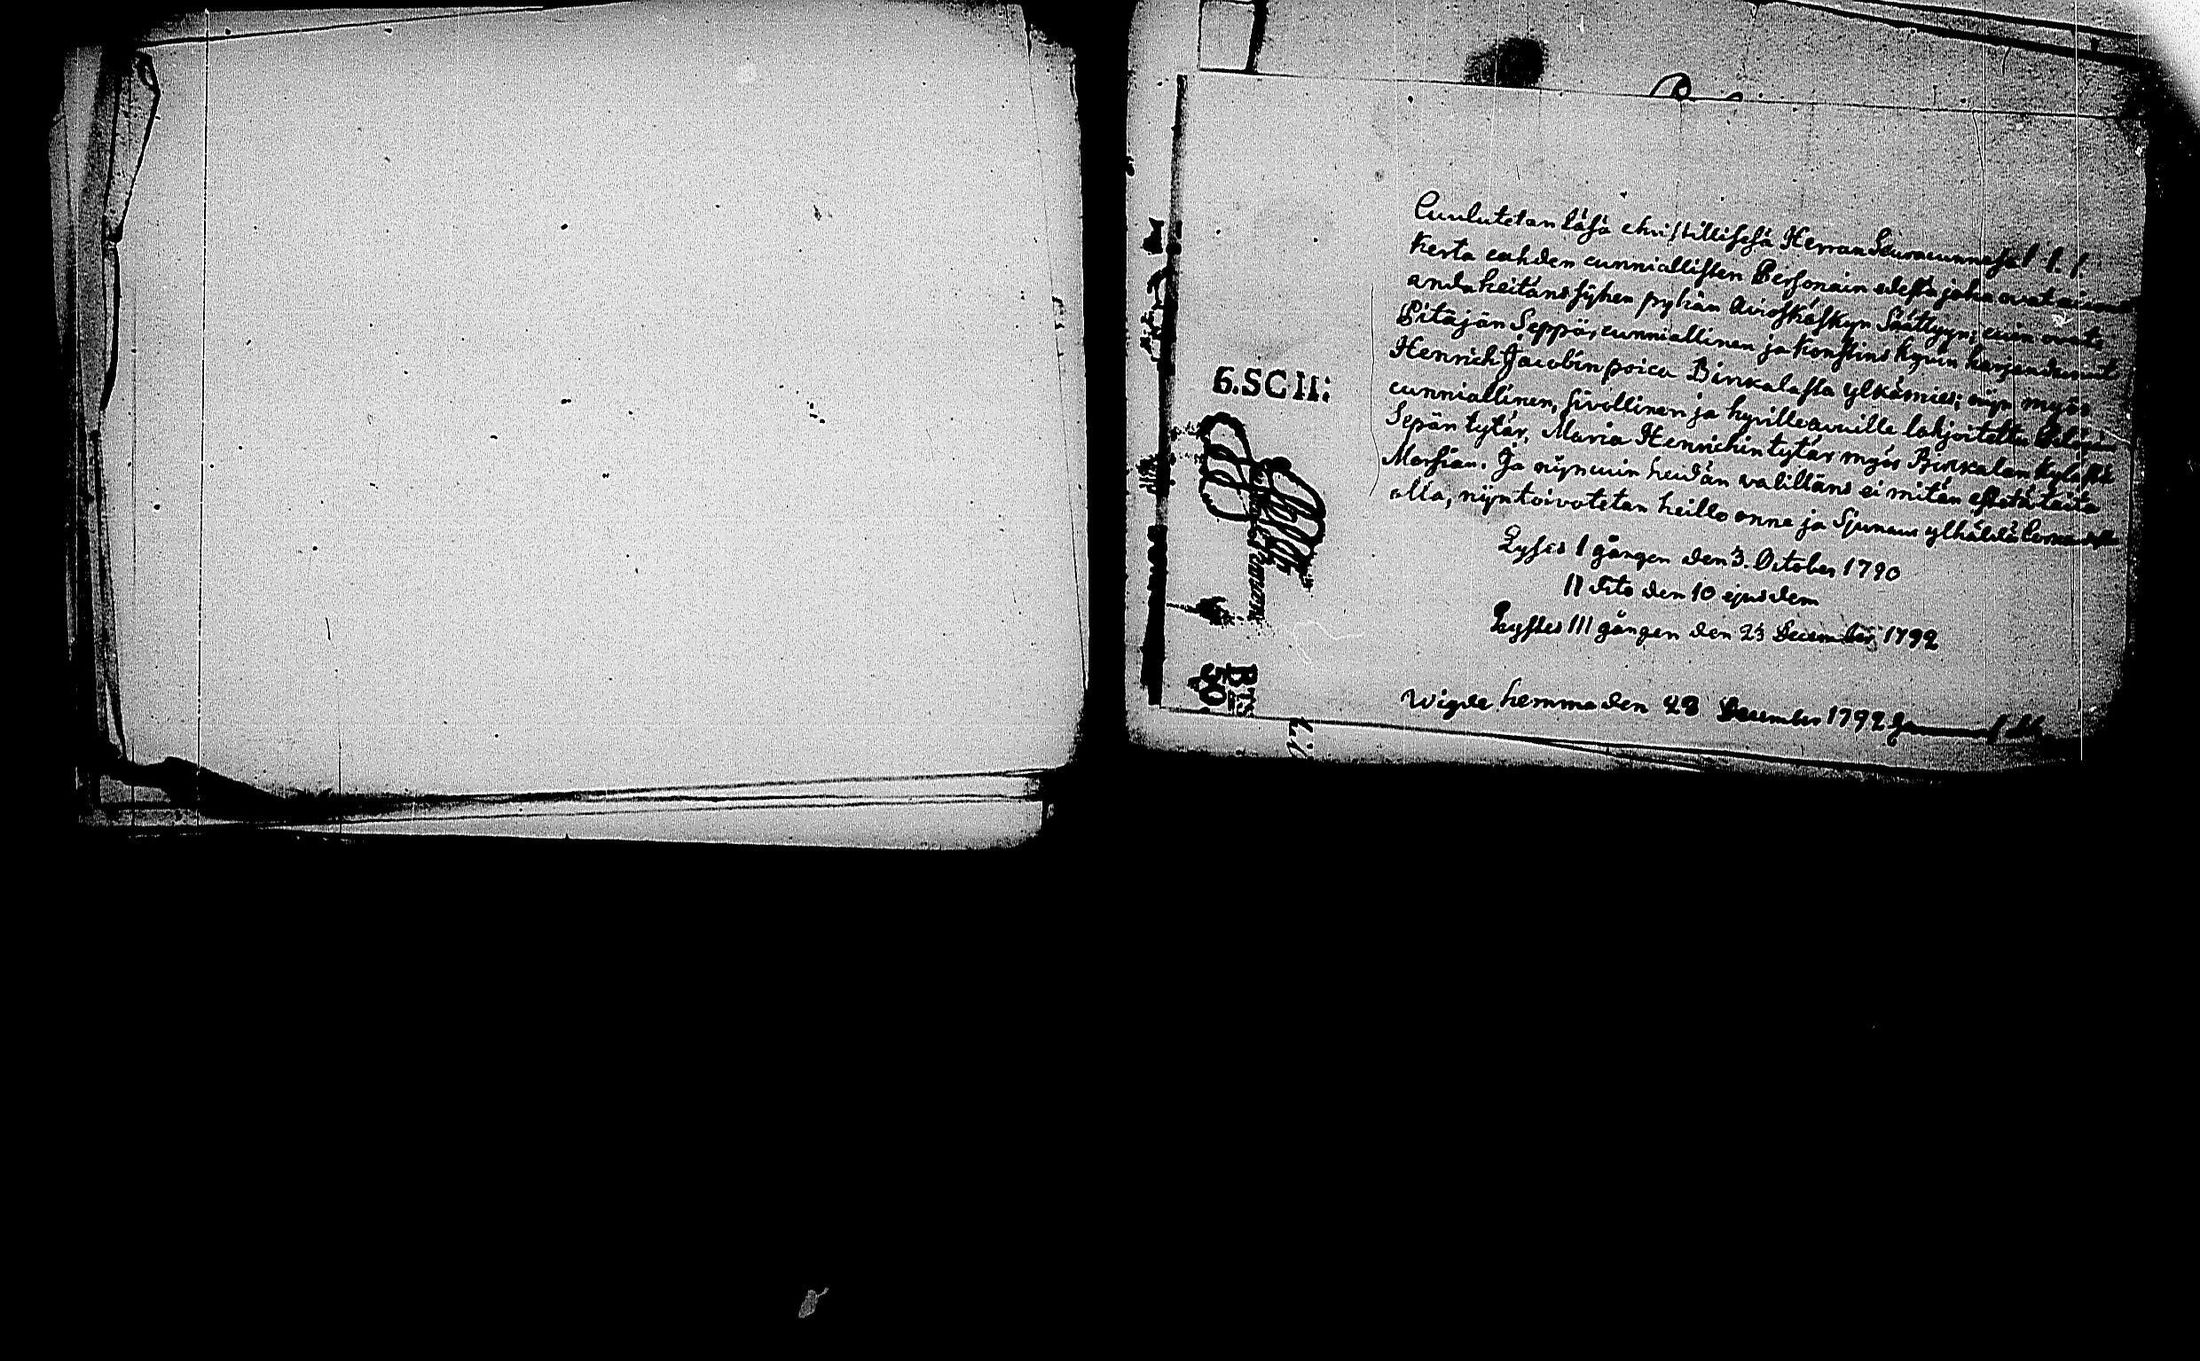 6.SCH:
Cuulutetan täsä christillisesä Herran Seuracunnasa I. I. I.
kerta cahden cunniallisten Personain edestä joka ovat aiconet
anda heitäns sijhen pyhän Avioskäskyn Säättyyn; cuin ovat:
Pitäjän Seppä, cunniallinen ja konstins kyvin harjandunut
Henrich Jacobin poica Birckalasta ylkämies; nijn myös
cunniallinen, sivollinen ja hyville avuille lahjoitettu
Sepän tytär, Maria Henrichin tytär myös Birckalan kyläst
Morsian. Ja nijncuin heidän valillans ei mitän estettä taita
olla, nijn toivotetan heille onne ja Sjunaus ylhäldä
Lystes I gången den 3. October 1790
II dito den 10 ejusdem
Lystes III gången den 23 December 1792
Wigde hemma den 28 December 1792